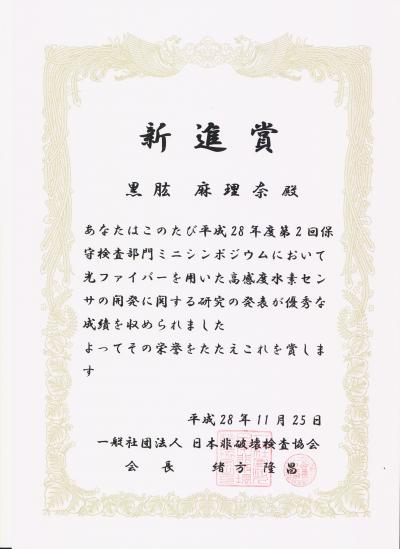 新進賞
黒肱 麻理奈 殿
あなたはこのたび平成28年度第2回保
守検査部門ミニシンポジウムにおいて
光ファイバーを用いた高感度水素セン
サの開発に関する研究の発表が優秀な
成績を収められました
よってその栄誉をたたえこれを賞しま
す
平成28年11月25日
一般社団法人 日本非破壊検査協会
会 長 緒方 隆昌